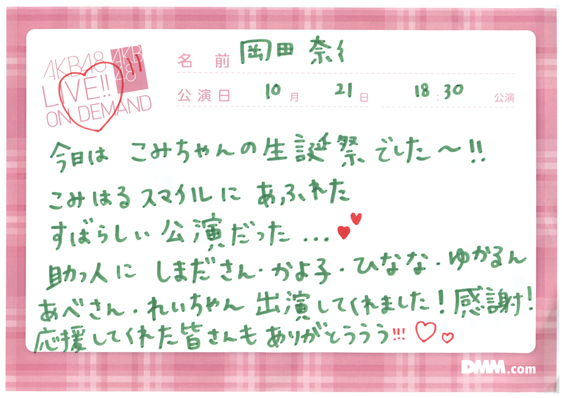 AKB48
LIVE!!
ON DEMAND
AKB48
名前 岡田 奈々
公演日 10月 21日 18:30 公演
今日は こみちゃんの生誕祭でした〜!!
こみはるスマイルに あふれた
すばらしい公演だった...
助っ人に しまださん・かよ子・ひなな・ゆかるん
あべさん・れいちゃん 出演してくれました!感謝!
応援してくれた皆さんも ありがとううう!!!
DMM.com